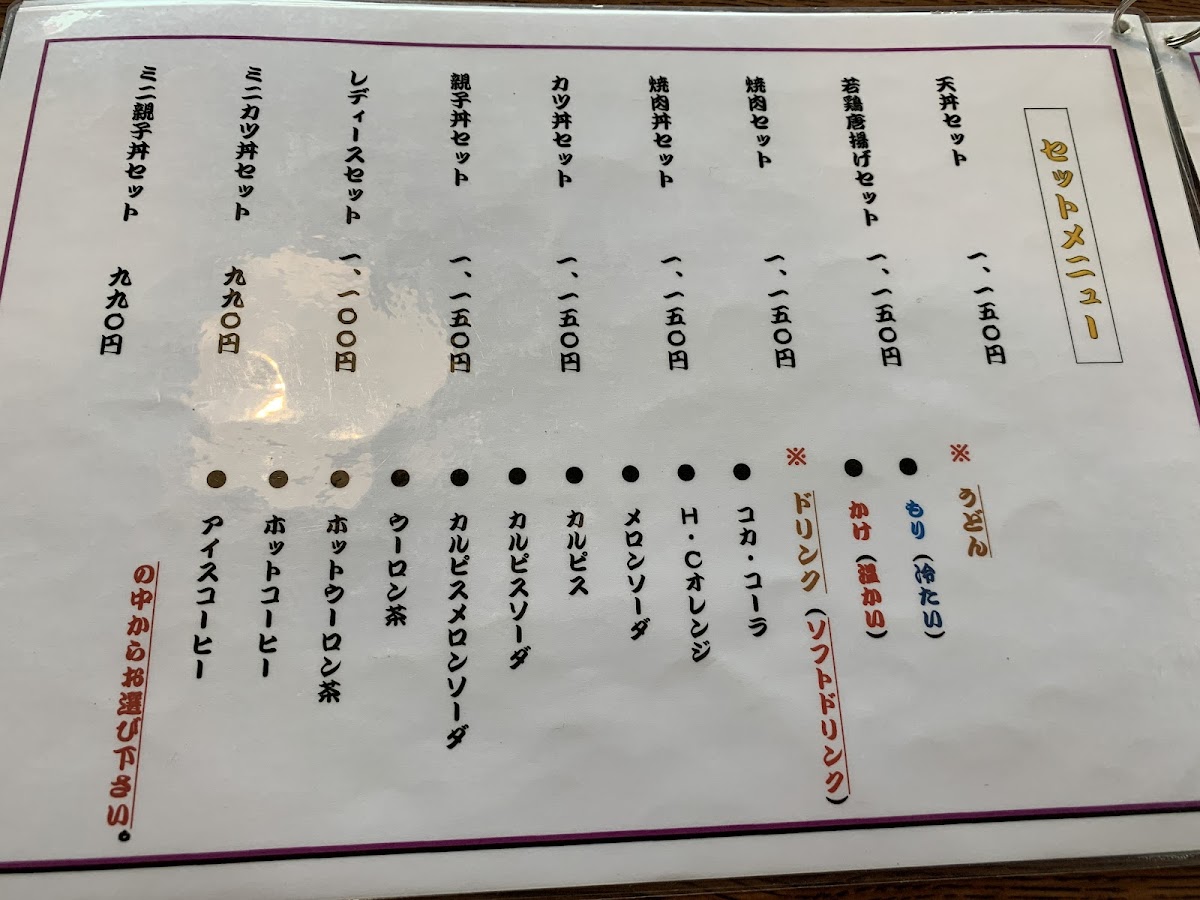 セットメニュー
天丼セット 一、一五〇円
若鶏唐揚げセット 一、一五〇円
焼肉セット 一、一五〇円
焼肉丼セット 一、一五〇円
カツ丼セット 一、一五〇円
親子丼セット 一、一五〇円
レディースセット 一、一〇〇円
ミニカツ丼セット 九九〇円
ミニ親子丼セット 九九〇円
※ うどん
● もり(冷たい)
● かけ(温かい)
※ ドリンク(ソフトドリンク)
● コカ・コーラ
● H・Cオレンジ
● メロンソーダ
● カルピス
● カルピスソーダ
● カルピスメロンソーダ
● ウーロン茶
● ホットウーロン茶
● ホットコーヒー
● アイスコーヒー
の中からお選び下さい。